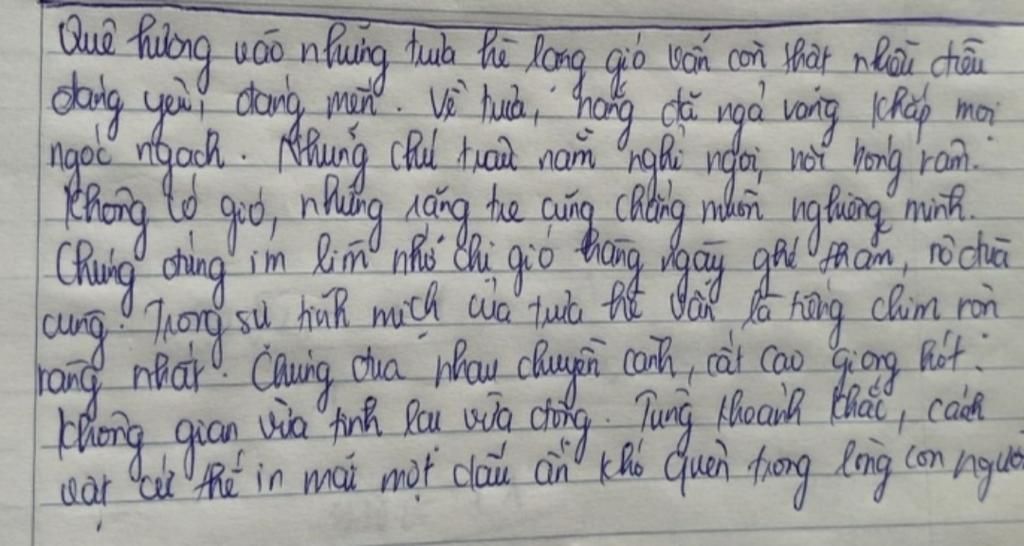 Quê hương vào những trưa hè lặng gió vẫn còn thật nhiều điều
đáng yêu, đáng mến. Về trưa, nắng đã ngả vàng khắp mọi
ngóc ngách. Những chú trâu nằm nghỉ ngơi, nơi bóng râm.
Không có gió, những rặng tre cũng chẳng muốn nghiêng mình.
Chúng đứng im lìm nhớ chị gió hàng ngày ghé thăm, nô đùa
cùng. Trong sự tĩnh mịch của trưa hè vẫn là tiếng chim rộn
ràng nhất. Chúng đua nhau chuyền cành, cất cao giọng hót.
Không gian vừa tĩnh lại vừa động. Từng khoảnh khắc, cảnh
vật cứ thế in mãi một dấu ấn khó quên trong lòng con người